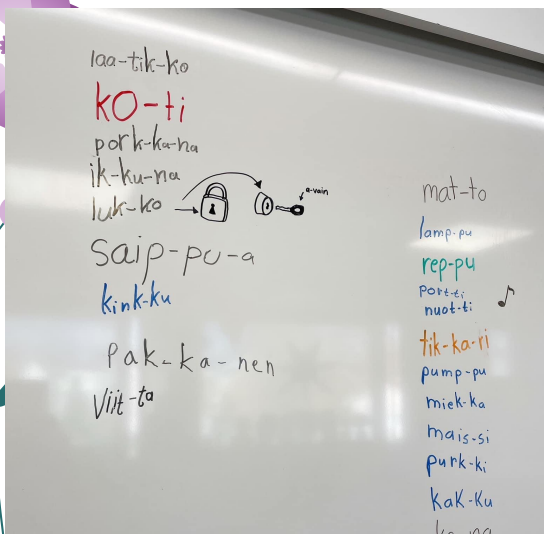 laa-tik-ko
KO-ti
pork-ka-na
ik-ku-na
luk-ko
a-vain
saip-pu-a
kink-ku
Pak-ka-nen
Viit-ta
mat-to
lamp-pu
rep-pu
port-ti
nuot-ti
tik-ka-ri
pump-pu
miek-ka
mais-si
purk-ki
kak-ku